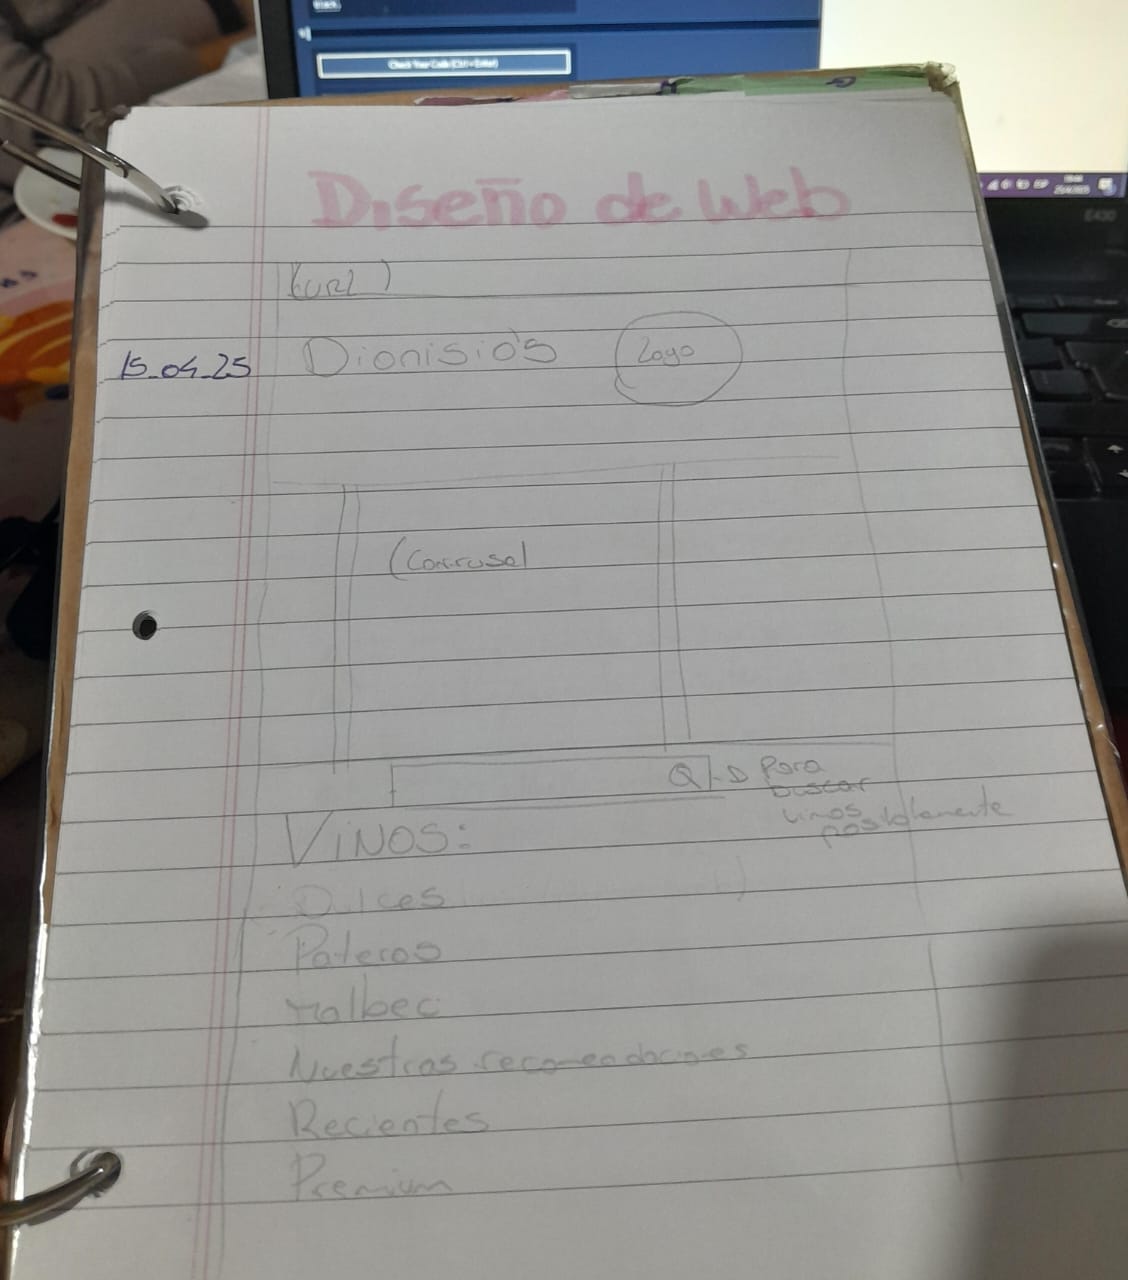 Check Your Code (Ctrl + Enter)
E430
Diseño de Web
(URL)
15-04-25
Dionisio's
Logo
(Carrusel
Para
buscar
vinos
posiblemente
VINOS:
Dulces
Pateros
Malbec
Nuestras recomendaciones
Recientes
Premium